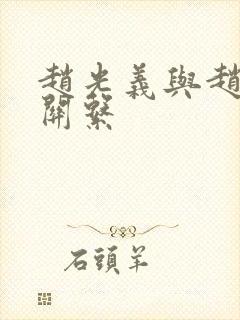 趙光義與趙
關繫
石頭羊